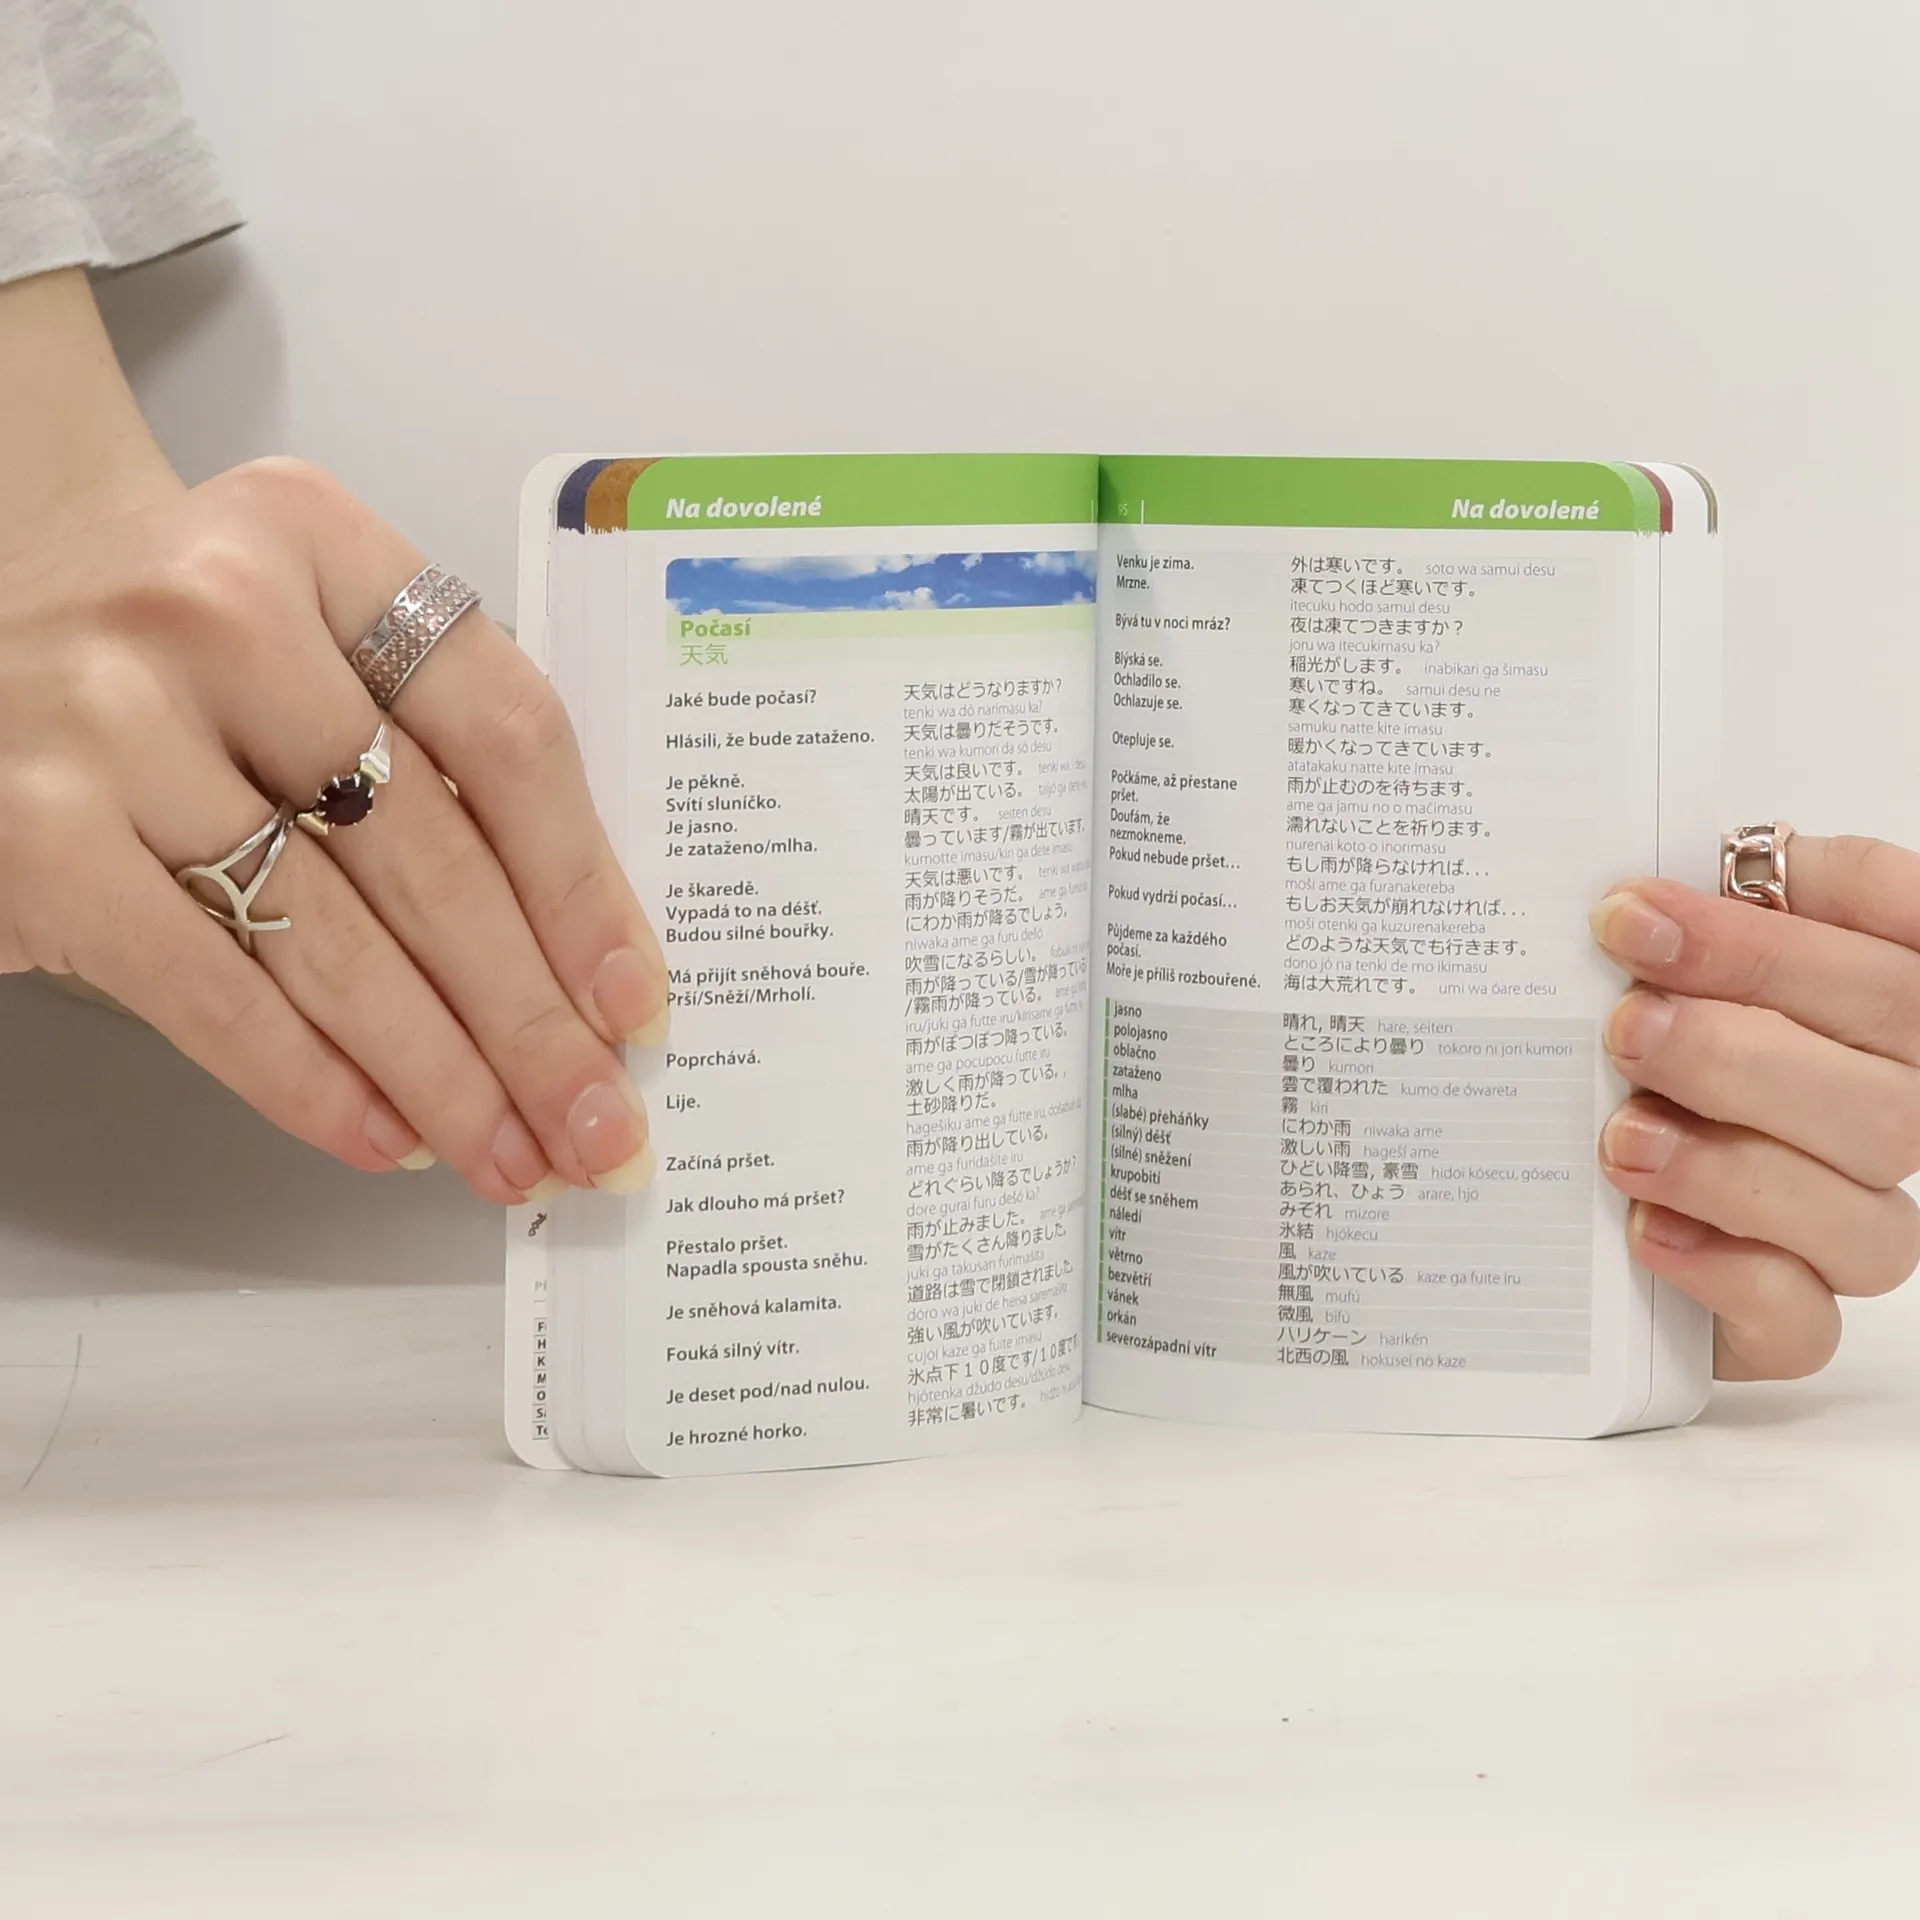 Na dovolené
Počasí
天気
Jaké bude počasí? 天気はどうなりますか?
tenki wa dó narimasu ka?
Hlásili, že bude zataženo. 天気は曇りだそうです。
tenki wa kumori da só desu
Je pěkně. 天気は良いです。 tenki wa
Svítí sluníčko. 太陽が出ている。
Je jasno. 晴天です。 seiten desu
Je zataženo/mlha. 曇っています/霧が出ています。
kumotte imasu/kiri ga dete imasu
Je škaredě. 天気は悪いです。
Vypadá to na déšť. 雨が降りそうだ。
Budou silné bouřky. にわか雨が降るでしょう。
niwaka ame ga furu dešó
Má přijít sněhová bouře. 吹雪になるらしい。
Prší/Sněží/Mrholí. 雨が降っている/雪が降っている
/霧雨が降っている。
iru/juki ga futte iru/kirisame ga futte
Poprchává. 雨がぽつぽつ降っている。
ame ga pocupocu futte iru
Lije. 激しく雨が降っている。,
土砂降りだ。
hagešiku ame ga futte iru,
Začíná pršet. 雨が降り出している。
ame ga furidašite iru
Jak dlouho má pršet? どれぐらい降るでしょうか?
dore gurai furu dešó ka?
Přestalo pršet. 雨が止みました。
Napadla spousta sněhu. 雪がたくさん降りました。
juki ga takusan furimašita
Je sněhová kalamita. 道路は雪で閉鎖されました。
dóro wa juki de heisa saremašita
Fouká silný vítr. 強い風が吹いています。
cujoi kaze ga fuite imasu
Je deset pod/nad nulou. 氷点下10度です/10度です。
hjótenka džúdo desu/džúdo desu
Je hrozné horko. 非常に暑いです。
95
Na dovolené
Venku je zima. 外は寒いです。 soto wa samui desu
Mrzne. 凍てつくほど寒いです。
itecuku hodo samui desu
Bývá tu v noci mráz? 夜は凍てつきますか?
joru wa itecukimasu ka?
Blýská se. 稲光がします。 inabikari ga šimasu
Ochladilo se. 寒いですね。 samui desu ne
Ochlazuje se. 寒くなってきています。
samuku natte kite imasu
Otepluje se. 暖かくなってきています。
atatakaku natte kite imasu
Počkáme, až přestane 雨が止むのを待ちます。
pršet. ame ga jamu no o mačimasu
Doufám, že 濡れないことを祈ります。
nezmokneme. nurenai koto o inorimasu
Pokud nebude pršet... もし雨が降らなければ...
moši ame ga furanakereba
Pokud vydrží počasí... もしお天気が崩れなければ...
moši otenki ga kuzurenakereba
Půjdeme za každého どのような天気でも行きます。
počasí. dono jó na tenki de mo ikimasu
Moře je příliš rozbouřené. 海は大荒れです。 umi wa óare desu
jasno 晴れ, 晴天 hare, seiten
polojasno ところにより曇り tokoro ni jori kumori
oblačno 曇り kumori
zataženo 雲で覆われた kumo de ówareta
mlha 霧 kiri
(slabé) přeháňky にわか雨 niwaka ame
(silný) déšť 激しい雨 hageší ame
(silné) sněžení ひどい降雪, 豪雪 hidoi kósecu, gósecu
krupobití あられ、ひょう arare, hjó
déšť se sněhem みぞれ mizore
náledí 氷結 hjókecu
vítr 風 kaze
větrno 風が吹いている kaze ga fuite iru
bezvětří 無風 mufú
vánek 微風 bifú
orkán ハリケーン harikén
severozápadní vítr 北西の風 hokusei no kaze